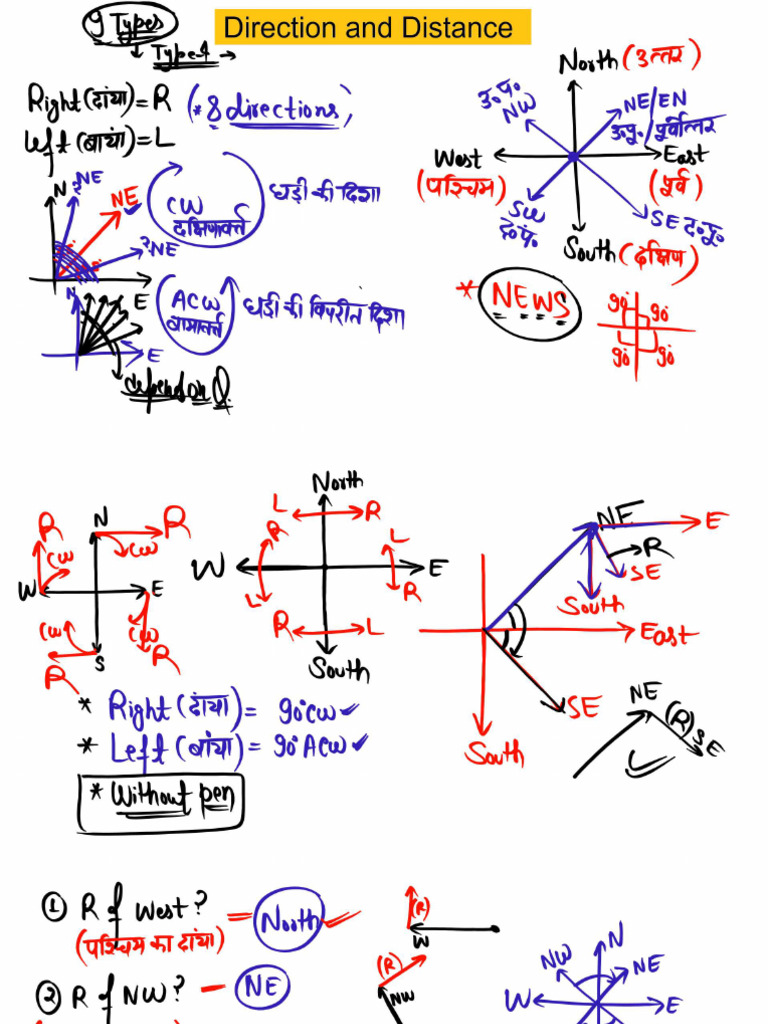 9 Types
Direction and Distance
→ Type 1 →
Right (दांया) = R
(* 8 directions)
Left (बायां) = L
North (उत्तर)
उ.प.
NW
NE/EN
उ.पू./पूर्वोत्तर
West
(पश्चिम)
East
(पूर्व)
SW
द.प.
SE द.पू.
South (दक्षिण)
N
NE
NE
NE
E
CW
दक्षिणावर्त
घड़ी की दिशा
N
E
ACW
वामावर्त
घड़ी की विपरीत दिशा
depend on Q.
* NEWS
90° 90°
90° 90°
N
R
R
CW
CW
W
E
CW
CW
S
R
R
North
L
R
R
L
W
E
L
R
R
L
South
NE
E
R
SE
South
East
SE
South
NE
(R)
SE
* Right (दांया) = 90° CW ✓
* Left (बांया) = 90° ACW ✓
* Without pen
① R of West? = North
(पश्चिम का दांया)
(R)
W
② R of NW? – NE
(R)
NW
N
NW
NE
W
E